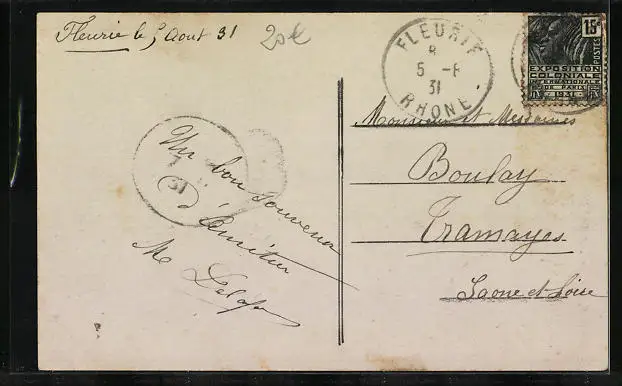 Fleurie le 5 Aout 31
20c
FLEURIE
8
5 - 8
31
RHONE
15c
POSTES
EXPOSITION
COLONIALE
INTERNATIONALE
DE PARIS
1931
Monsieur et Mesdames
Boulay
Tramayes
Saone et Loire
Un bon souvenir
31
Me